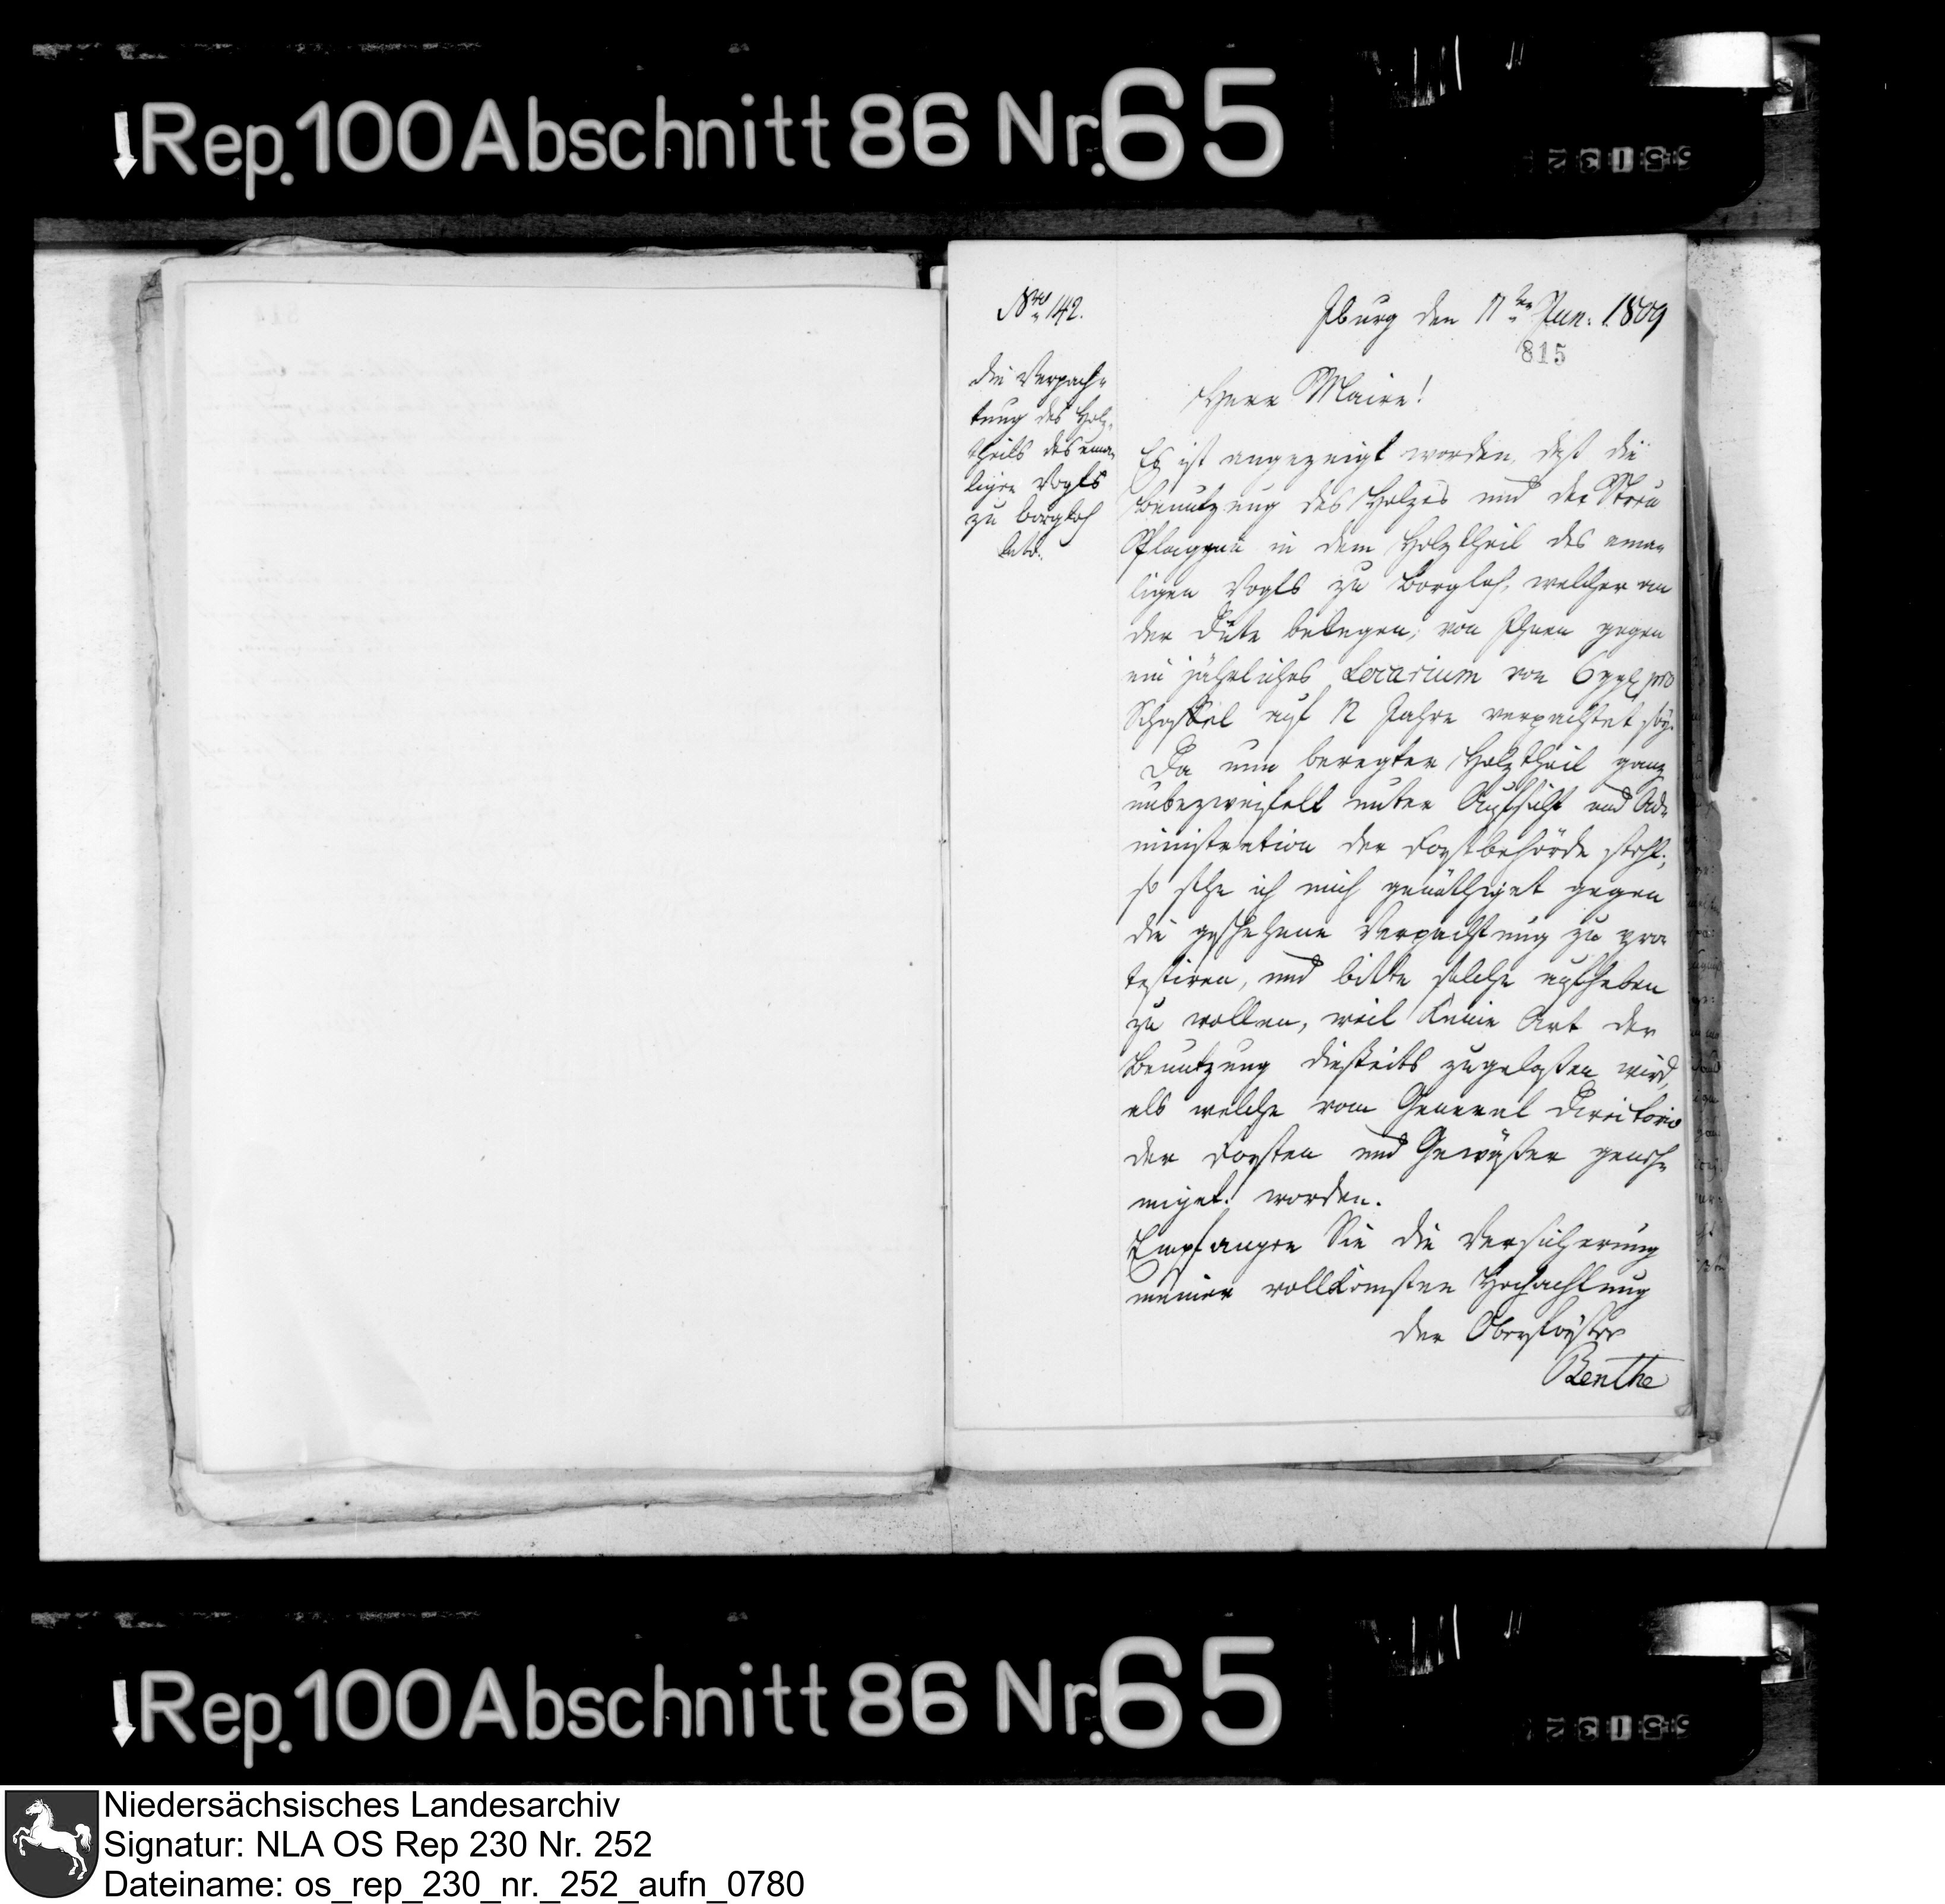 Rep. 100 Abschnitt 86 Nr. 65
Nro 142.
Iburg den 11ten Jun: 1809
815
die Verpach-
tung des Holz-
theils des ema-
ligen Vogts
zu Borgloh
betr.
Herr Maire!
Es ist angezeigt worden, daß die
Benutzung des Holzes und der Streu
Plaggen in dem Holztheil des ema-
ligen Vogts zu Borgloh, welcher an
der Düte belegen, von Ihnen gegen
ein jährliches Locarium von 6 ggl pro
Scheffel auf 12 Jahre verpachtet sey.
Da nun beregter Holztheil ganz
unbezweifelt unter Aufsicht und Ad-
ministration der Forstbehörde steht;
so sehe ich mich genöthiget gegen
die geschehene Verpachtung zu pro-
testiren, und bitte solche aufheben
zu wollen, weil keine Art der
Benutzung diesseits zugelaßen wird,
als welche vom General Directorio
der Forsten und Gewäßer geneh-
miget worden.
Empfangen Sie die Versicherung
meiner vollkomsten Hochachtung
der Oberförster
Benthe
Rep. 100 Abschnitt 86 Nr. 65
Niedersächsisches Landesarchiv
Signatur: NLA OS Rep 230 Nr. 252
Dateiname: os_rep_230_nr._252_aufn_0780